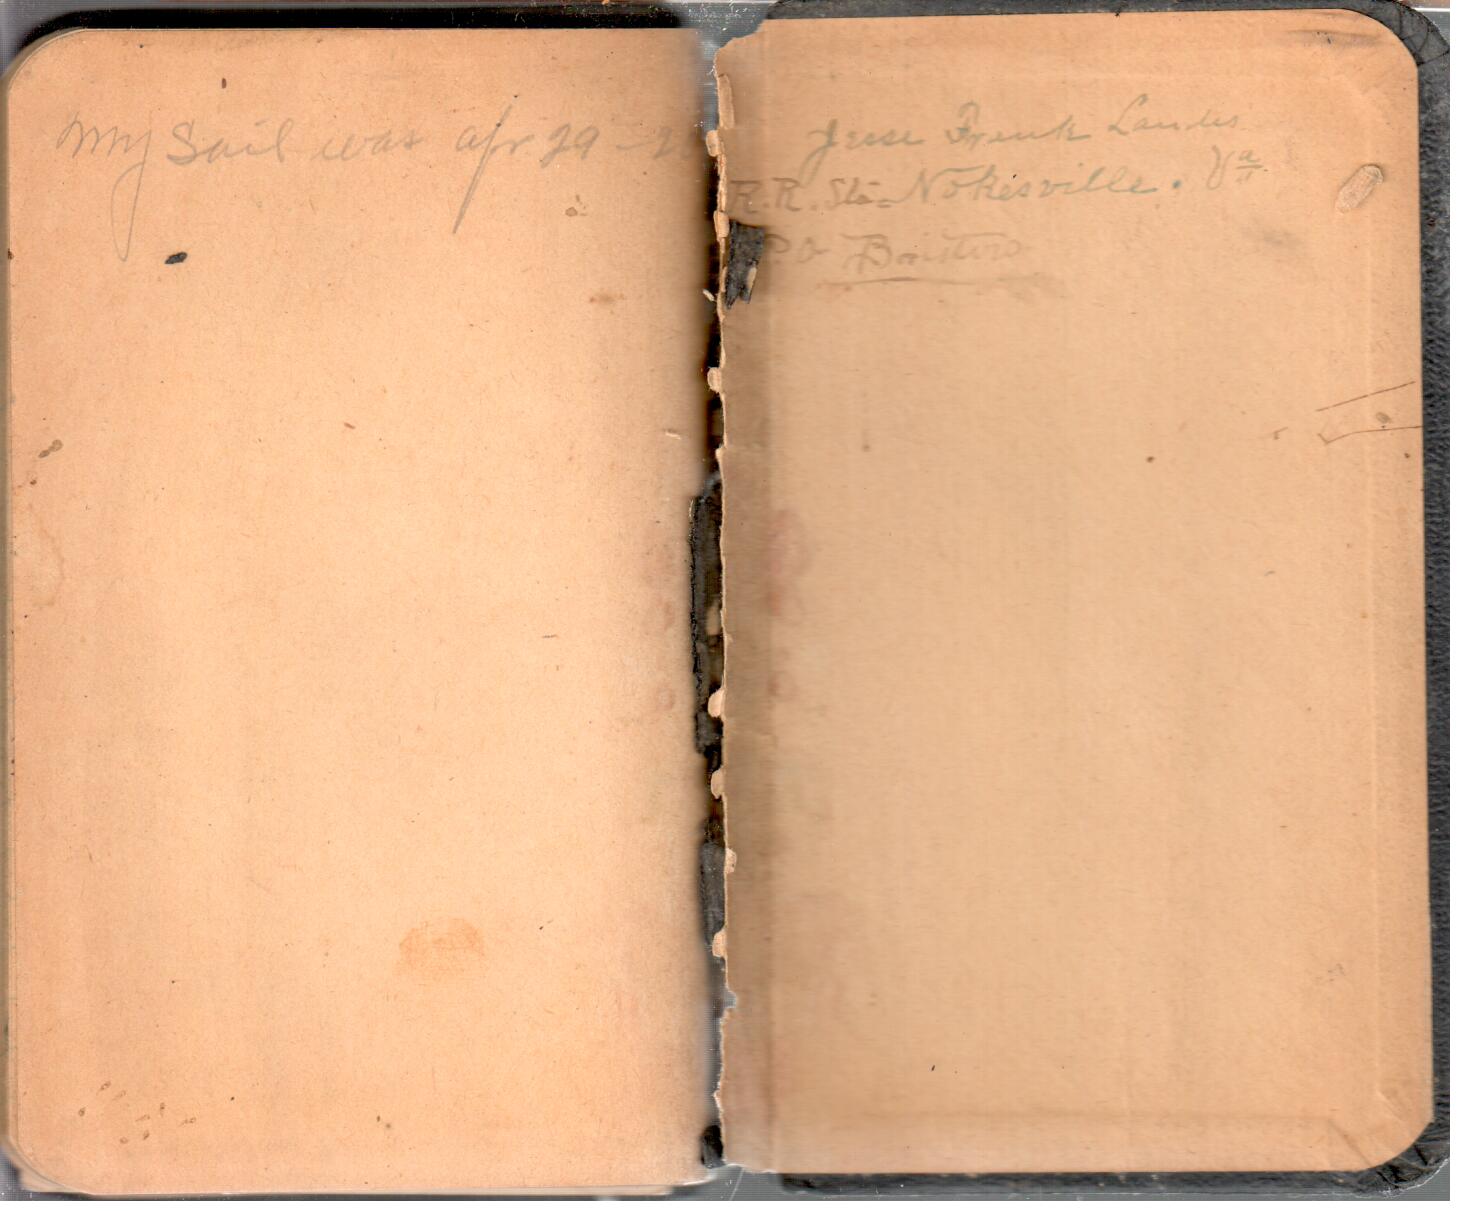 My Sail was apr 29 - 2
Jesse Frank Landes
R.R. Sta = Nokesville. Va
P.O Bristow